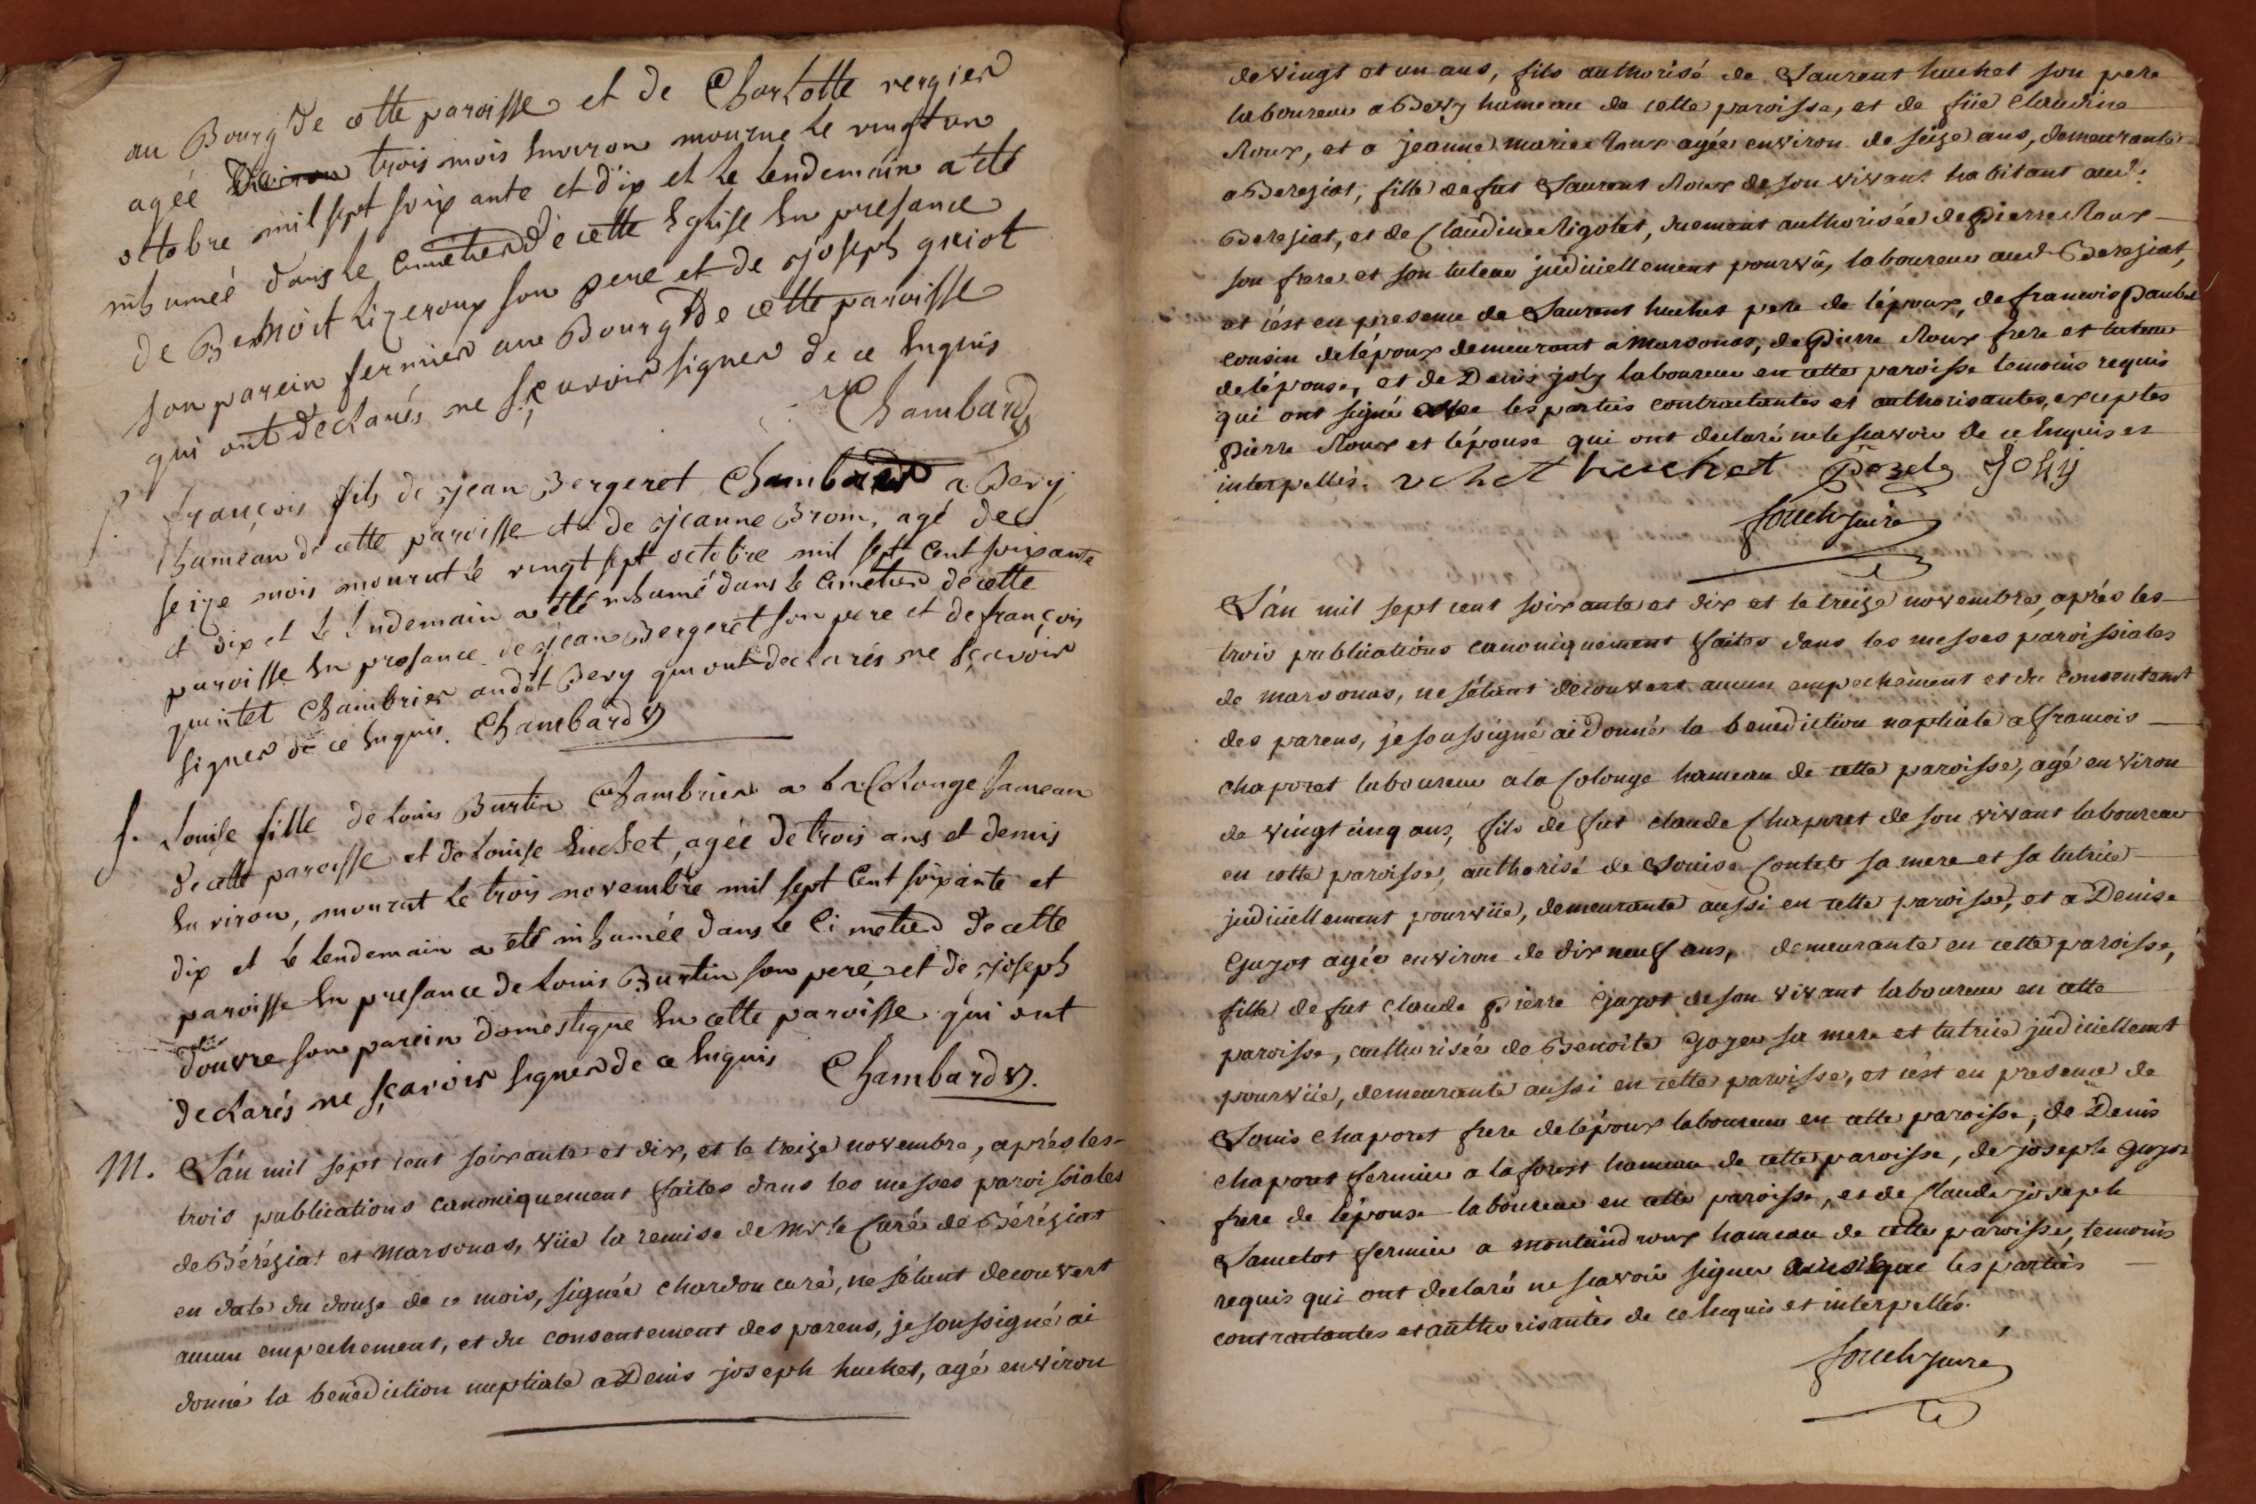 au Bourg de cette paroisse et de Charlotte vergier
agée trois mois environ mourue le vingt un
octobre mil sept soixante et dix et le lendemain a été
inhumée dans le cimetier de cette Eglise En presance
de Benoit Lizeroux son pere et de joseph guiot
son parein fermier au Bourg de cette paroisse
qui ont declarés ne sçavoir signer de ce Enquis
Chambard v
françois fils de jean Bergeret Chambrier a Bevy
hameau de cette paroisse et de jeanne Brom, agé de
seize mois mourut le vingt sept octobre mil sept cent soixante
et dix et le lendemain a été inhumé dans le cimetier de cette
paroisse En presance de jean Bergeret son pere et de françois
quintet Chambrier audit Bevy qui ont declarés ne sçavoir
signer de ce Enquis. Chambard v
f. Louise fille de Louis Burtin Chambrier a la Colonge hameau
de cette paroisse et de Louise huchet, agée de trois ans et demis
Environ, mourut le trois novembre mil sept Cent soixante et
dix et le lendemain a été inhumée dans le Cimetier de cette
paroisse En presance de Louis Burtin son pere, et de joseph
douvre son parein domestique En cette paroisse qui ont
declarés ne sçavoir signer de ce Enquis Chambard v.
M. L'an mil sept cent soixante et dix, et le treize novembre, aprés les
trois publications canoniquement faites dans les messes paroissiales
de Béréziat et marsonas, vüe la remise de Mr le Curé de Béréziat
en date du douze de ce mois, signée chardon curé, ne s'étant decouvert
aucun empechement, et du consentement des parens, je soussigné ai
donné la benediction nuptiale a Denis joseph huchet, agé environ
de vingt et un ans, fils authorisé de Laurent huchet son pere
laboureur a Bevy hameau de cette paroisse, et de füe Claudine
Roux, et a jeanne marie Roux agée environ de seize ans, demeurante
a Bereziat, fille de fut Laurent Roux de son vivant habitant aud:
Bereziat, et de Claudine Rigotet, düement authorisée de Pierre Roux
son frere et son tuteur judiciellement pourvû, laboureur aud Bereziat,
et c'est en presence de Laurent huchet pere de l'époux, de francois
cousin de l'époux demeurant a marsonas, de Pierre Roux frere et tuteur
de l'épouse, et de Denis joly laboureur en cette paroisse temoins requis
qui ont signé les parties contractantes et authorisantes, exceptés
Pierre Roux et l'épouse qui ont declaré ne le scavoir de ce Enquis et
interpellés. uchet huchet Joly
L'an mil sept cent soixante et dix et le treize novembre, aprés les
trois publications canoniquement faites dans les messes paroissiales
de marsonas, ne s'étant decouvert aucun empechement et du consentement
des parens, je soussigné ai donné la benediction nuptiale a francois
chaporet laboureur a la Colonge hameau de cette paroisse, agé environ
de vingt cinq ans, fils de fut claude Chaporet de son vivant laboureur
en cette paroisse, authorisé de Louise Contet sa mere et sa tutrice
judiciellement pourvüe, demeurante aussi en cette paroisse, et a Denise
Guyot agée environ de dix neuf ans, demeurante en cette paroisse,
fille de fut Claude Pierre Guyot de son vivant laboureur en cette
paroisse, authorisée de Benoite sa mere et tutrice judiciellemt
pourvüe, demeurante aussi en cette paroisse, et c'est en presence de
Louis Chaporet frere de l'époux laboureur en cette paroisse, de Denis
chaporet fermier a la forest hameau de cette paroisse, de joseph guyot
frere de l'épouse laboureur en cette paroisse, et de Claude joseph
fermier a hameau de cette paroisse, temoins
requis qui ont declaré ne scavoir signer ainsi que les parties
contractantes et authorisantes de ce Enquis et interpellés.